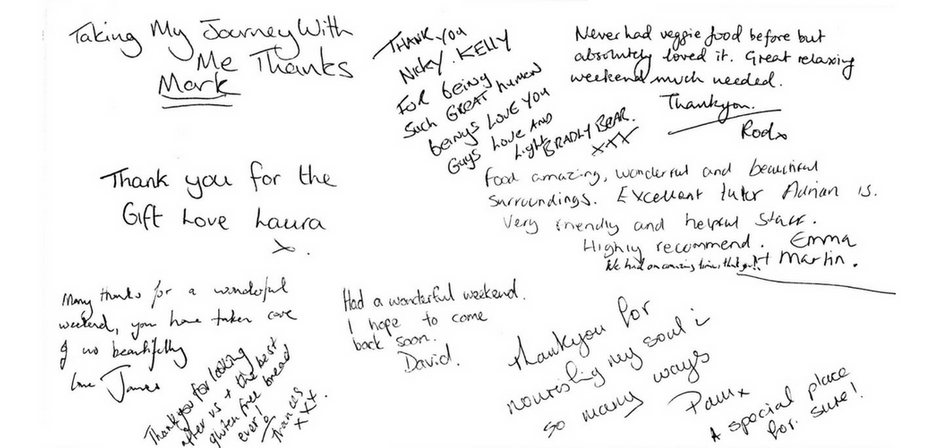 Taking My Journey With
Me Thanks
Mark
THANK YOU
Nicky. KELLY
For being
Such GREAT human
beings LOVE YOU
Guys Love AND
Light BRADLY BEAR.
xxx
Never had veggie food before but
absolutely loved it. Great relaxing
weekend much needed.
Thankyou.
Rod x
Thank you for the
Gift Love Laura
x.
Food amazing, wonderful and beautiful
surroundings. Excellent tutor Adrian is.
Very friendly and helpful staff.
Highly recommend. Emma
We had an amazing time,
+ Martin.
Many thanks for a wonderful
weekend, you have taken care
of us beautifully
Love James
Thank you for looking
after us + the best
gluten free bread
ever!
Frances
xxx.
Had a wonderful weekend.
I hope to come
back soon.
David.
Thankyou for
nourishing my soul i
so many ways
Pam x
A special place
for sure!